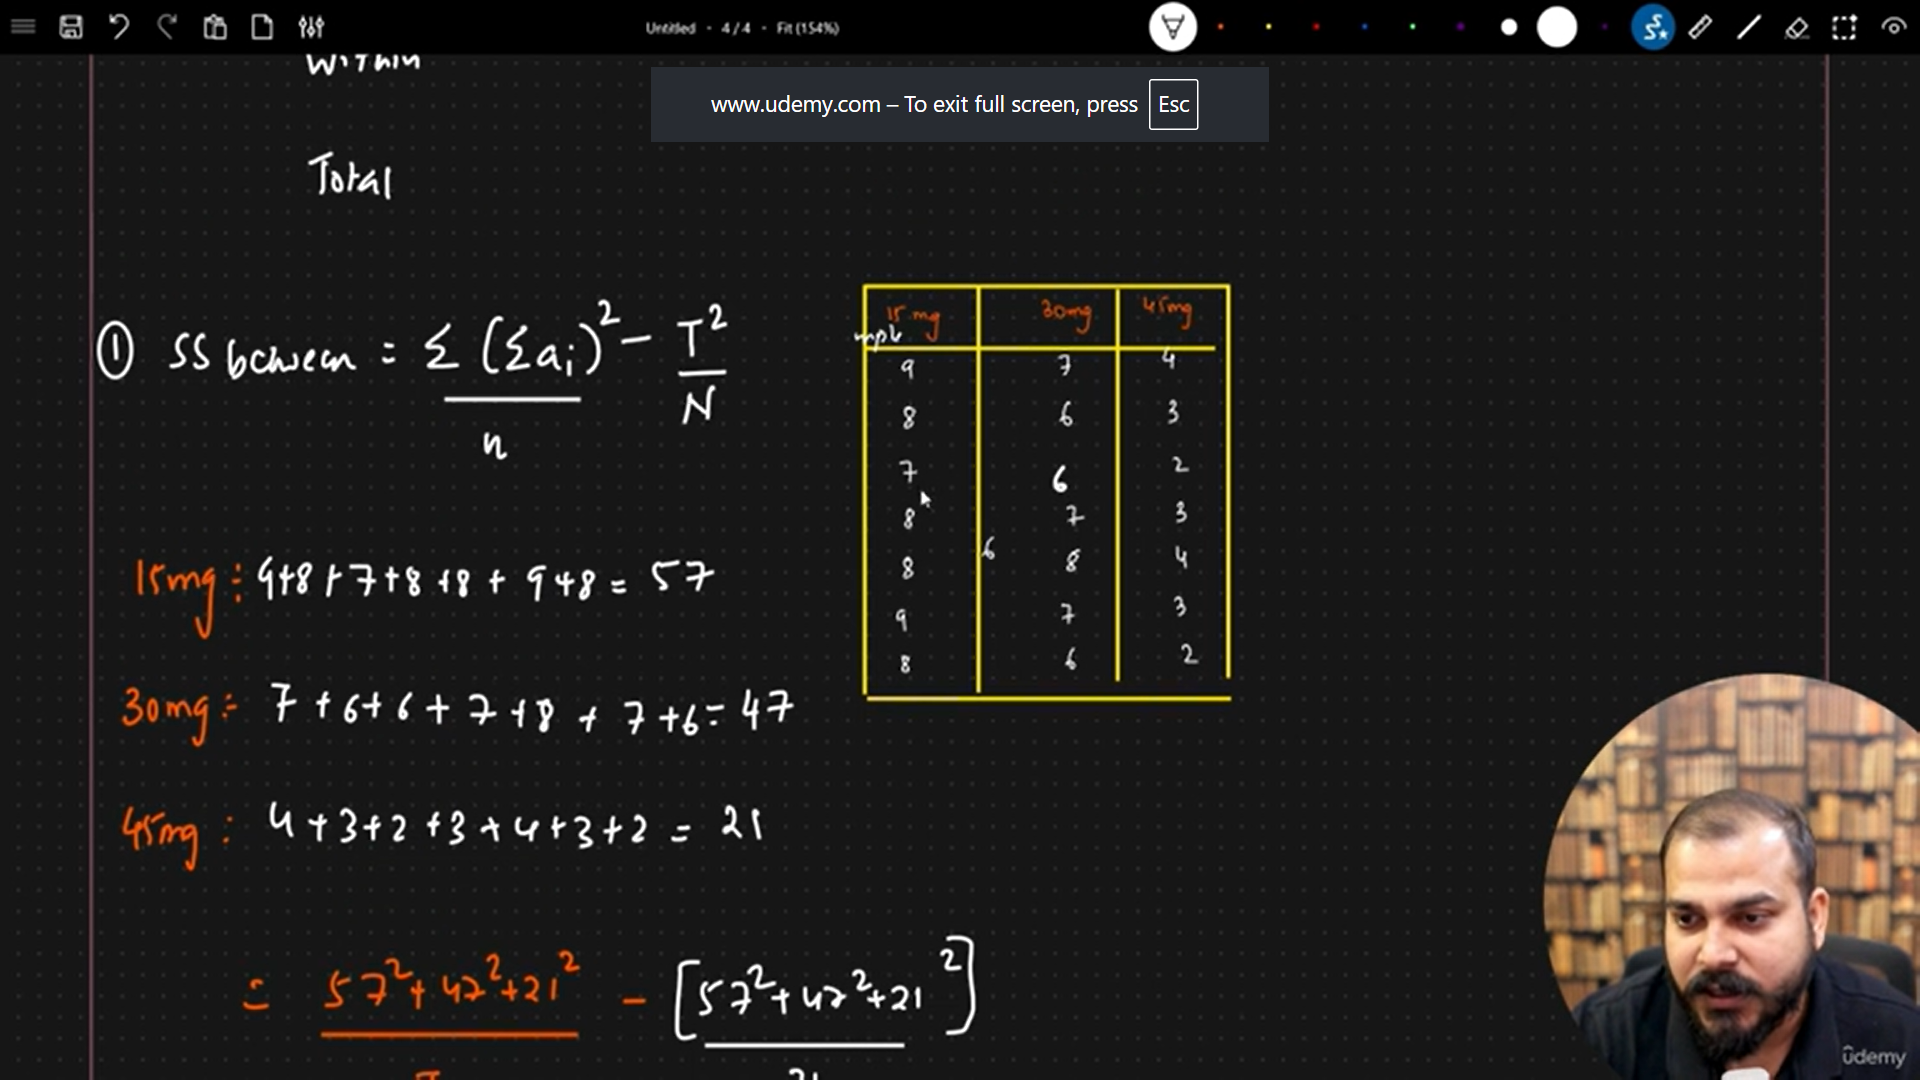 Untitled • 4 / 4 • Fit (154%)
www.udemy.com – To exit full screen, press Esc
Within
Total
① SS between = Σ (Σai)² - T²
n N
15 mg 30mg 45mg
9 7 4
8 6 3
7 6 2
8 7 3
8 6 8 4
9 7 3
8 6 2
15mg : 9+8+7+8+8+9+8 = 57
30mg = 7+6+6+7+8+7+6 = 47
45mg : 4+3+2+3+4+3+2 = 21
= 57²+47²+21² - [57²+47²+21²]
21
ûdemy